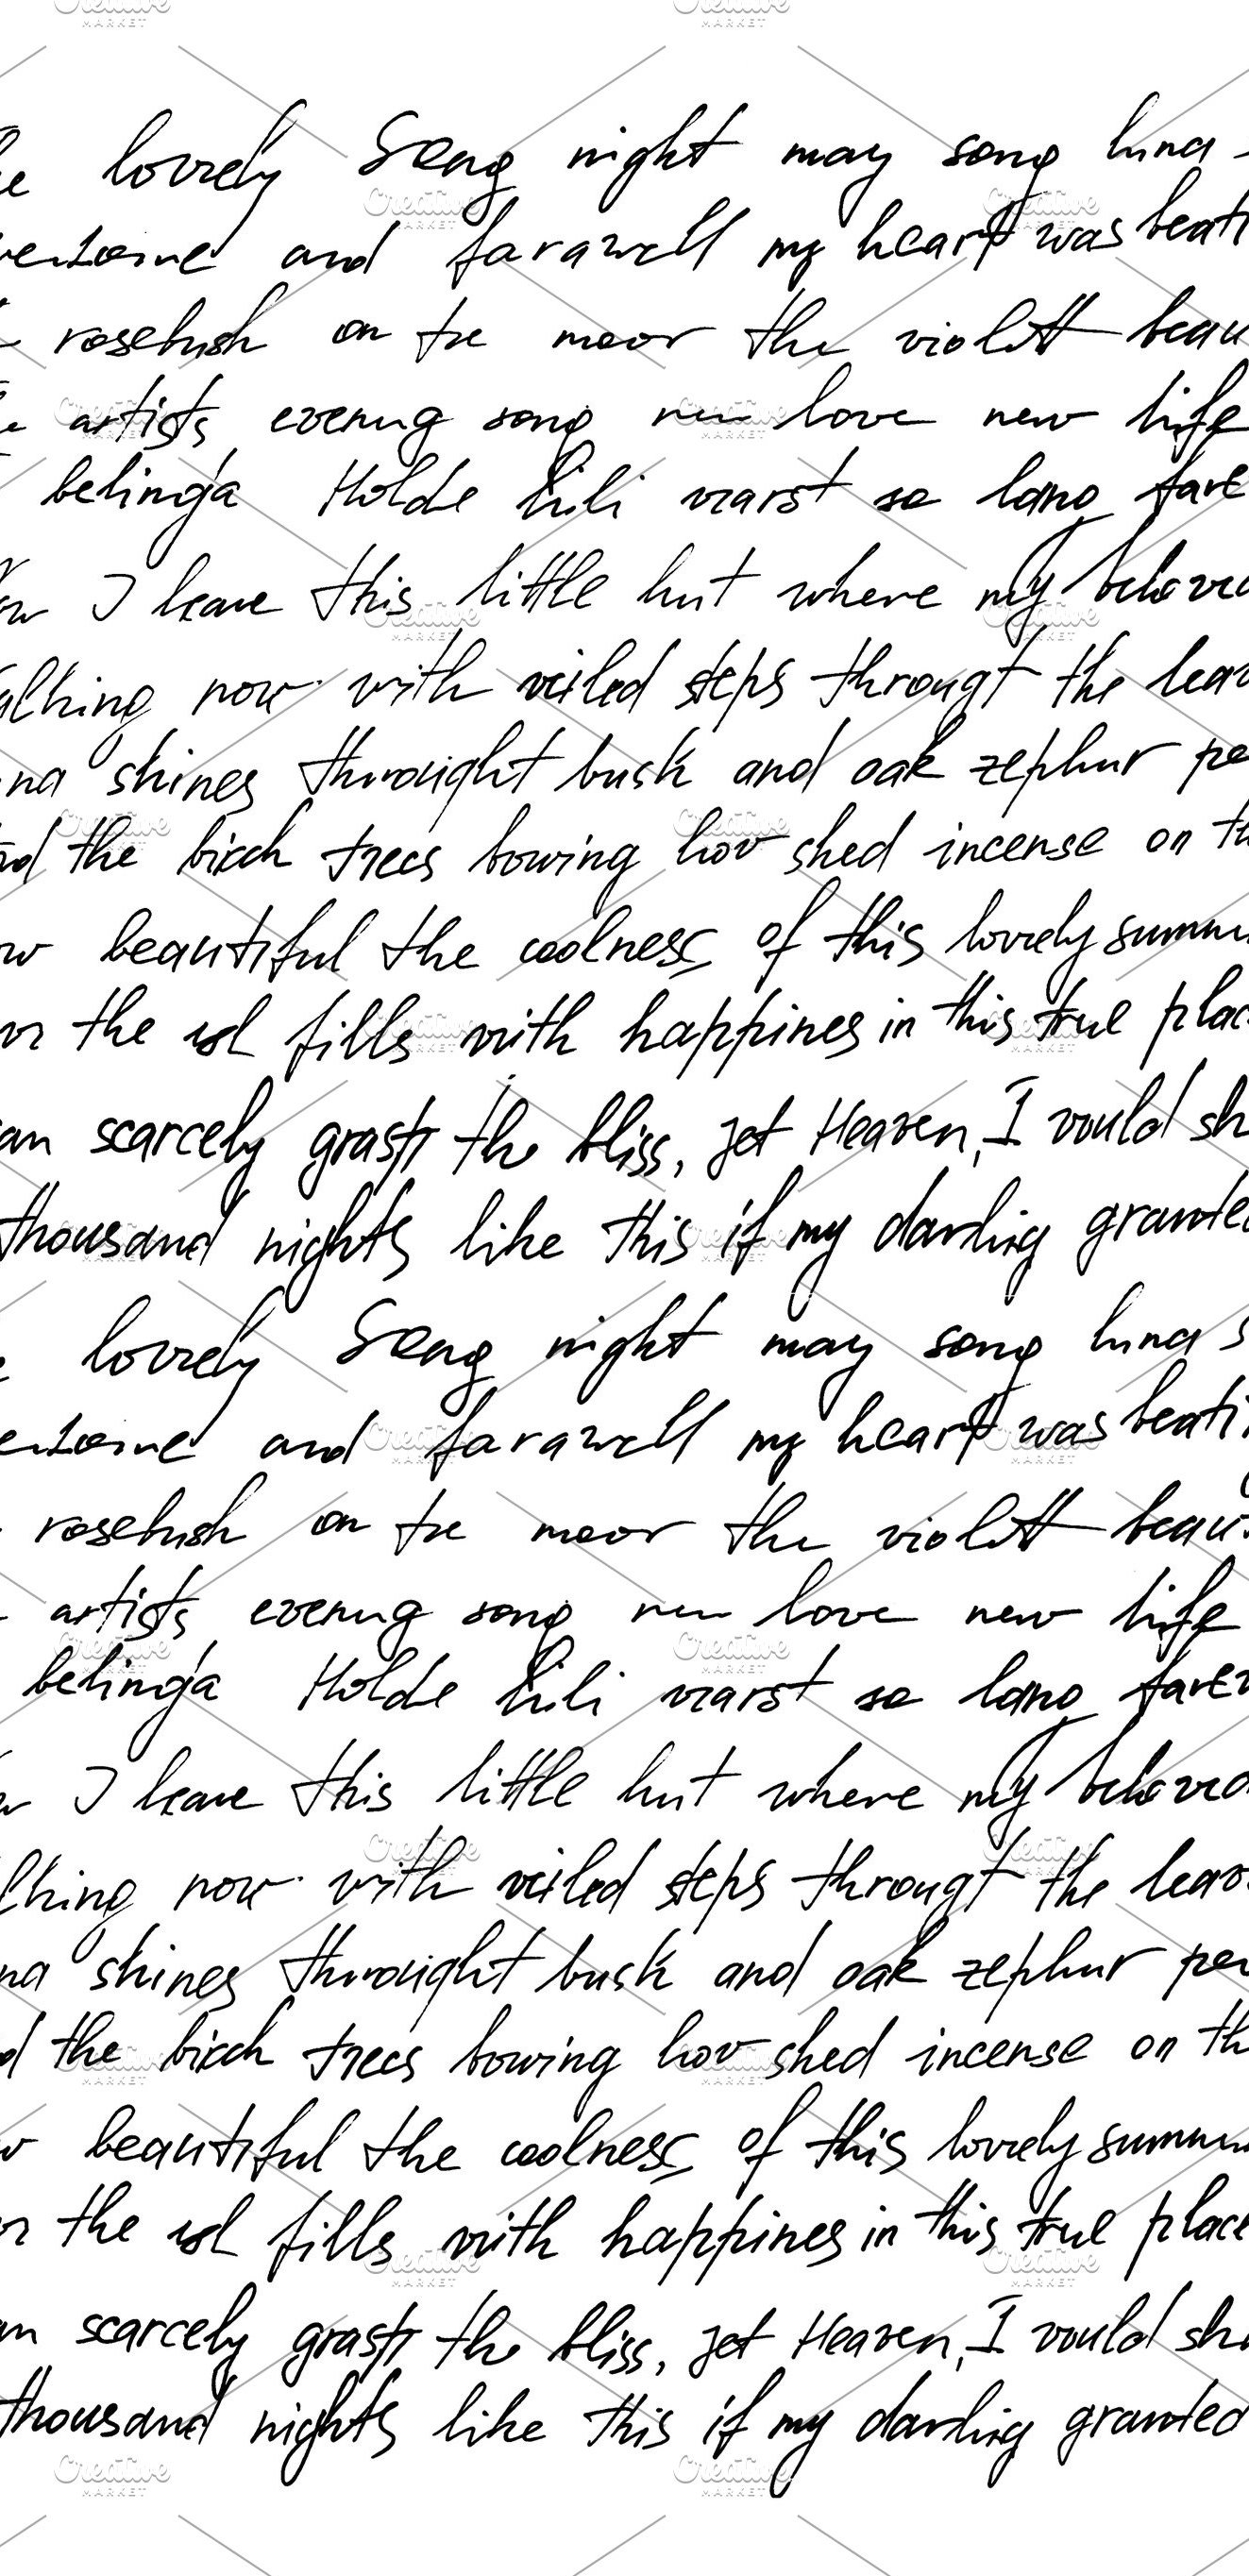 lovely Song night may song luna
and farawell my heart was beati
rosebush on tre moor the violett beau
artists evening song new love new life
belinga Holde Lili warst so lang fare
I leave this little hut where my beloved
alking now with veiled steps througt the leav
na shines throught busk and oak zephur pe
nd the birch trees bowing hov shed incense on th
ow beautiful the coolness of this lovely summ
the fills with happines in this true plac
an scarcely grasp the bliss, jet Heaven, I would sh
thousand nights like this if my darling grante
lovely Song night may song luna s
and farawell my heart was beati
rosebush on tre moor the violett beau
artists evening song new love new life
belinga Holde Lili warst so lang fare
I leave this little hut where my beloved
lking now with veiled steps througt the leav
na shines throught busk and oak zephur pe
d the birch trees bowing hov shed incense on th
w beautiful the coolness of this lovely summ
the fills with happines in this true place
an scarcely grasp the bliss, jet Heaven, I would sh
thousand nights like this if my darling granted